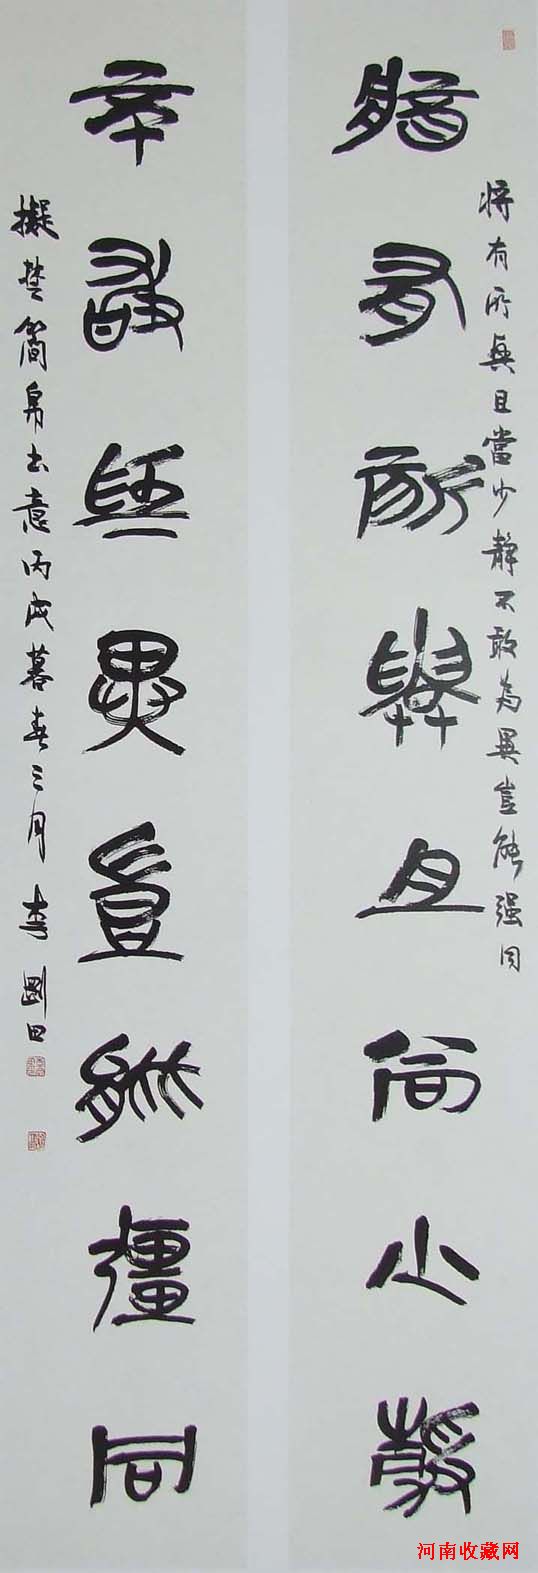 將有所與且當少靜不敢為異豈能强同
將有所與且尚少靜
不敢為異豈能彊同
擬楚簡帛書意丙戌暮春三月李剛田
河南收藏网